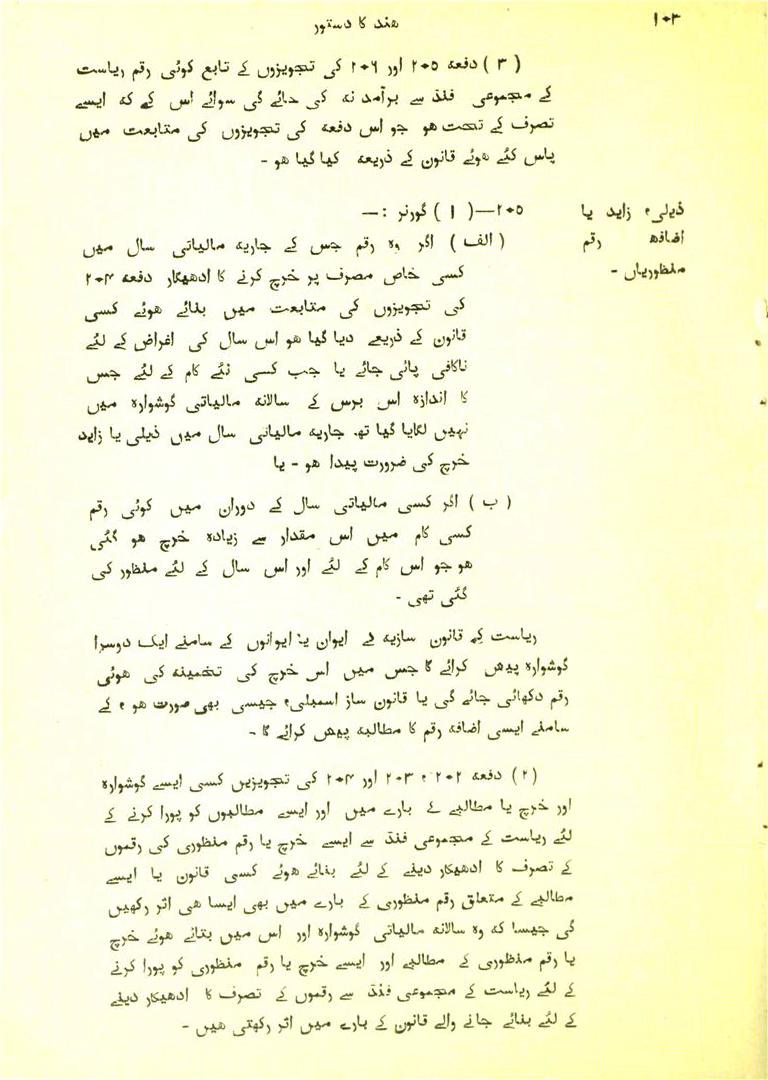 ہند کا دستور
۱۰۳
( ۳ ) دفعہ ۲۰۵ اور ۲۰۶ کی تجویزوں کے تابع کوئی رقم ریاست
کے مجموعی فنڈ سے برآمد نہ کی جائے گی سوائے اس کے کہ ایسے
تصرف کے تحت ہو جو اس دفعہ کی تجویزوں کی متابعت میں
پاس کئے ہوئے قانون کے ذریعہ کیا گیا ہو -
ذیلی، زاید یا
اضافہ رقم
منظوریاں -
۲۰۵—( ۱ ) گورنر :—
( الف ) اگر وہ رقم جس کے جاریہ مالیاتی سال میں
کسی خاص مصرف پر خرچ کرنے کا ادھیکار دفعہ ۲۰۴
کی تجویزوں کی متابعت میں بنائے ہوئے کسی
قانون کے ذریعے دیا گیا ہو اس سال کی اغراض کے لئے
ناکافی پائی جائے یا جب کسی نئے کام کے لئے جس
کا اندازہ اس برس کے سالانہ مالیاتی گوشوارہ میں
نہیں لگایا گیا تھ جاریہ مالیاتی سال میں ذیلی یا زاید
خرچ کی ضرورت پیدا ہو - یا
( ب ) اگر کسی مالیاتی سال کے دوران میں کوئی رقم
کسی کام میں اس مقدار سے زیادہ خرچ ہو گئی
ہو جو اس کام کے لئے اور اس سال کے لئے منظور کی
گئی تھی -
ریاست کے قانون سازیہ کے ایوان یا ایوانوں کے سامنے ایک دوسرا
گوشوارہ پیش کرائے گا جس میں اس خرچ کی تخمینہ کی ہوئی
رقم دکھائی جائے گی یا قانون ساز اسمبلی، جیسی بھی صورت ہو ، کے
سامنے ایسی اضافہ رقم کا مطالبہ پیش کرائے گا -
( ۲ ) دفعہ ۲۰۲ ، ۲۰۳ اور ۲۰۴ کی تجویزیں کسی ایسے گوشوارہ
اور خرچ یا مطالبے کے بارے میں اور ایسے مطالبوں کو پورا کرنے کے
لئے ریاست کے مجموعی فنڈ سے ایسے خرچ یا رقم منظوری کی رقموں
کے تصرف کا ادھیکار دینے کے لئے بنائے ہوئے کسی قانون یا ایسے
مطالبے کے متعلق رقم منظوری کے بارے میں بھی ایسا ہی اثر رکھیں
گی جیسا کہ وہ سالانہ مالیاتی گوشوارہ اور اس میں بتائے ہوئے خرچ
یا رقم منظوری کے مطالبے اور ایسے خرچ یا رقم منظوری کو پورا کرنے
کے لئے ریاست کے مجموعی فنڈ سے رقموں کے تصرف کا ادھیکار دینے
کے لئے بنائے جانے والے قانون کے بارے میں اثر رکھتی ہیں -